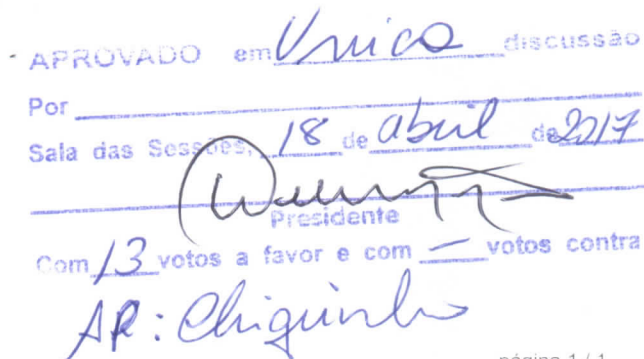 APROVADO em Unica discussão
Por
Sala das Sessões, 18 de abril de 2017
Presidente
Com 13 votos a favor e com — votos contra
AP: Chiquinho
página 1 / 1